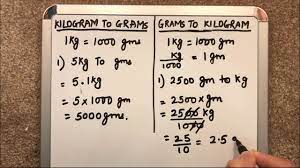 KILOGRAM TO GRAMS
1Kg = 1000 gms
1) 5Kg to gms
= 5.1Kg
= 5 × 1000 gm
= 5000 gms.
GRAMS TO KILOGRAM
1Kg = 1000 gms
1Kg/1000 = 1 gm
1) 2500 gm to kg
= 2500 × gm
= 2500 kg/1000
= 25/10 = 2.5